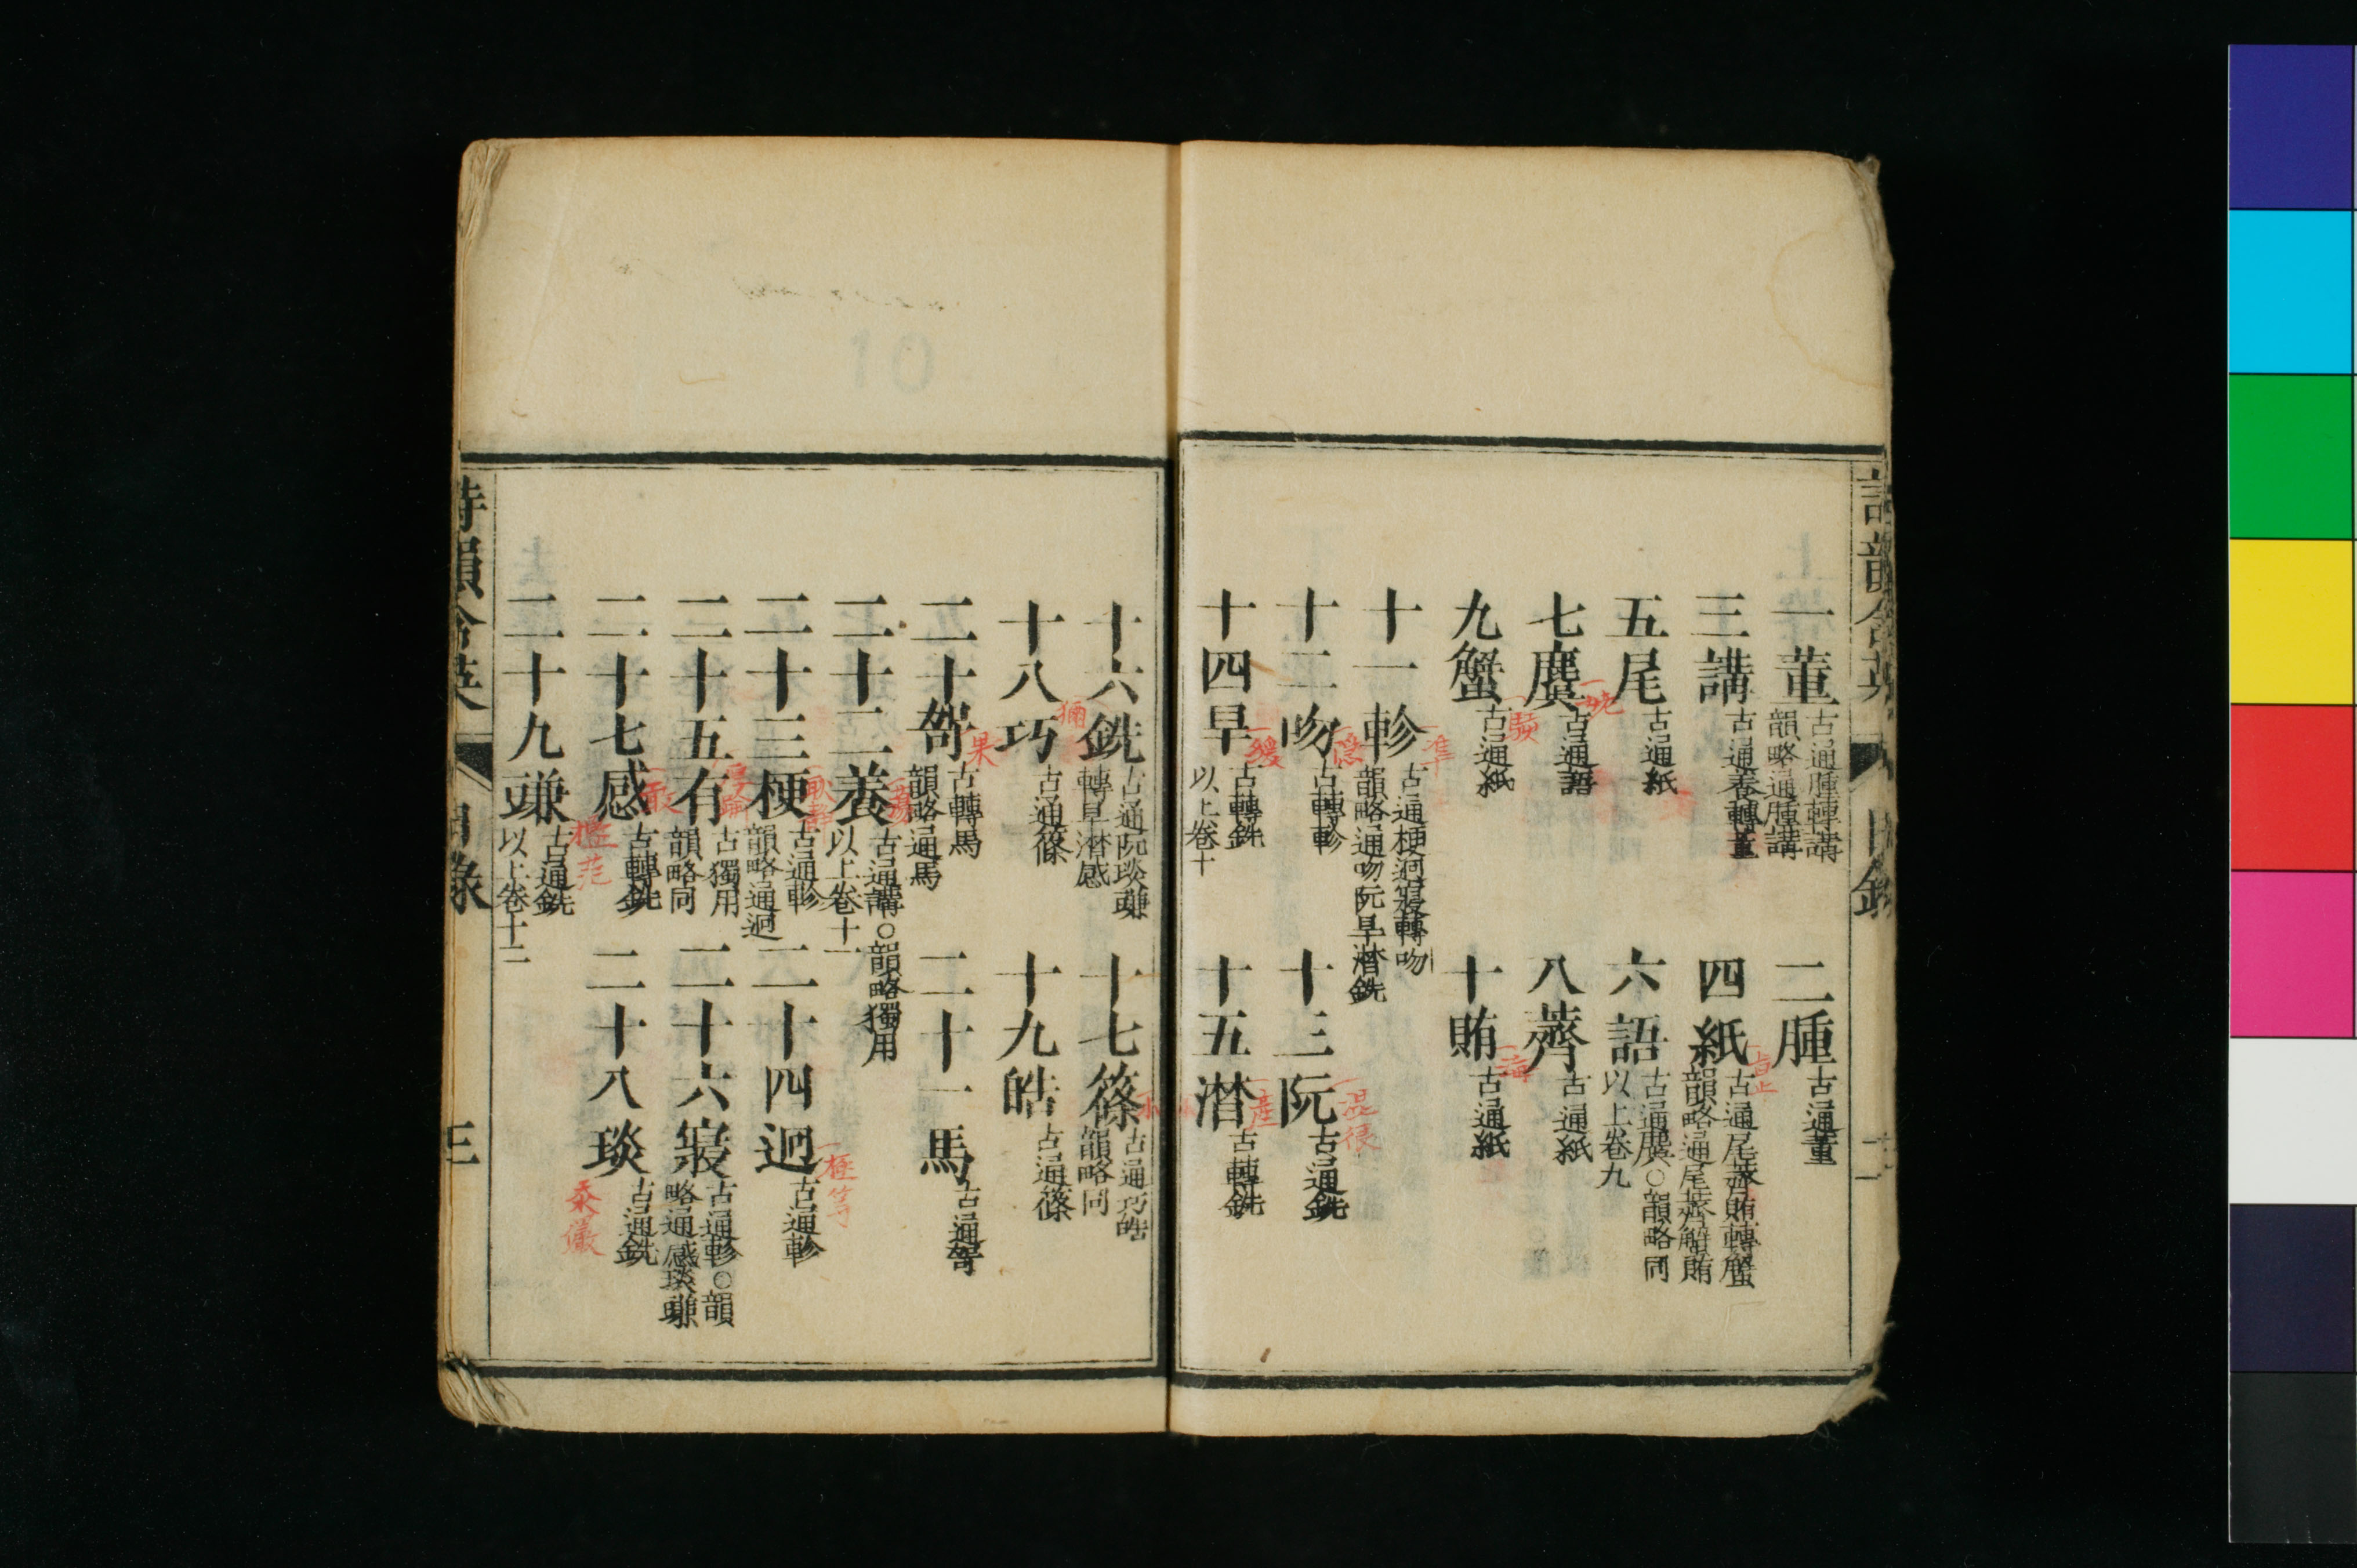 一董 古通腫轉講 韻略通腫講
二腫 古通董
三講 古通養轉董
四紙 古通尾薺賄轉蟹 韻略通尾薺蟹賄
旨止
五尾 古通紙
六語 古通麌○韻略同 以上卷九
七麌 古通語
八薺 古通紙
九蟹 古通紙
駭
十賄 古通紙
海
十一軫 古通梗迥寑轉吻 韻略通吻阮旱潸銑
準
十二吻 古轉軫
隱
十三阮 古通銑
混很
十四旱 古轉銑 以上卷十
緩
十五潸 古轉銑
產
詩韻含英
目錄
十六銑 古通阮琰豏 轉旱潸感
十七篠 古通巧皓 韻略同
小
十八巧 古通篠
十九皓 古通篠
二十哿 古轉馬 韻略通馬
果
二十一馬 古通哿
二十二養 古通講○韻略獨用 以上卷十一
蕩
二十三梗 古通軫 韻略通迥
耿靜
二十四迥 古通軫
拯等
二十五有 古獨用 韻略同
厚黝
二十六寑 古通軫○韻略通感琰豏
二十七感 古轉銑
敢
二十八琰 古通銑
忝儼
二十九豏 古通銑 以上卷十二
檻范
詩韻含英
目錄
三